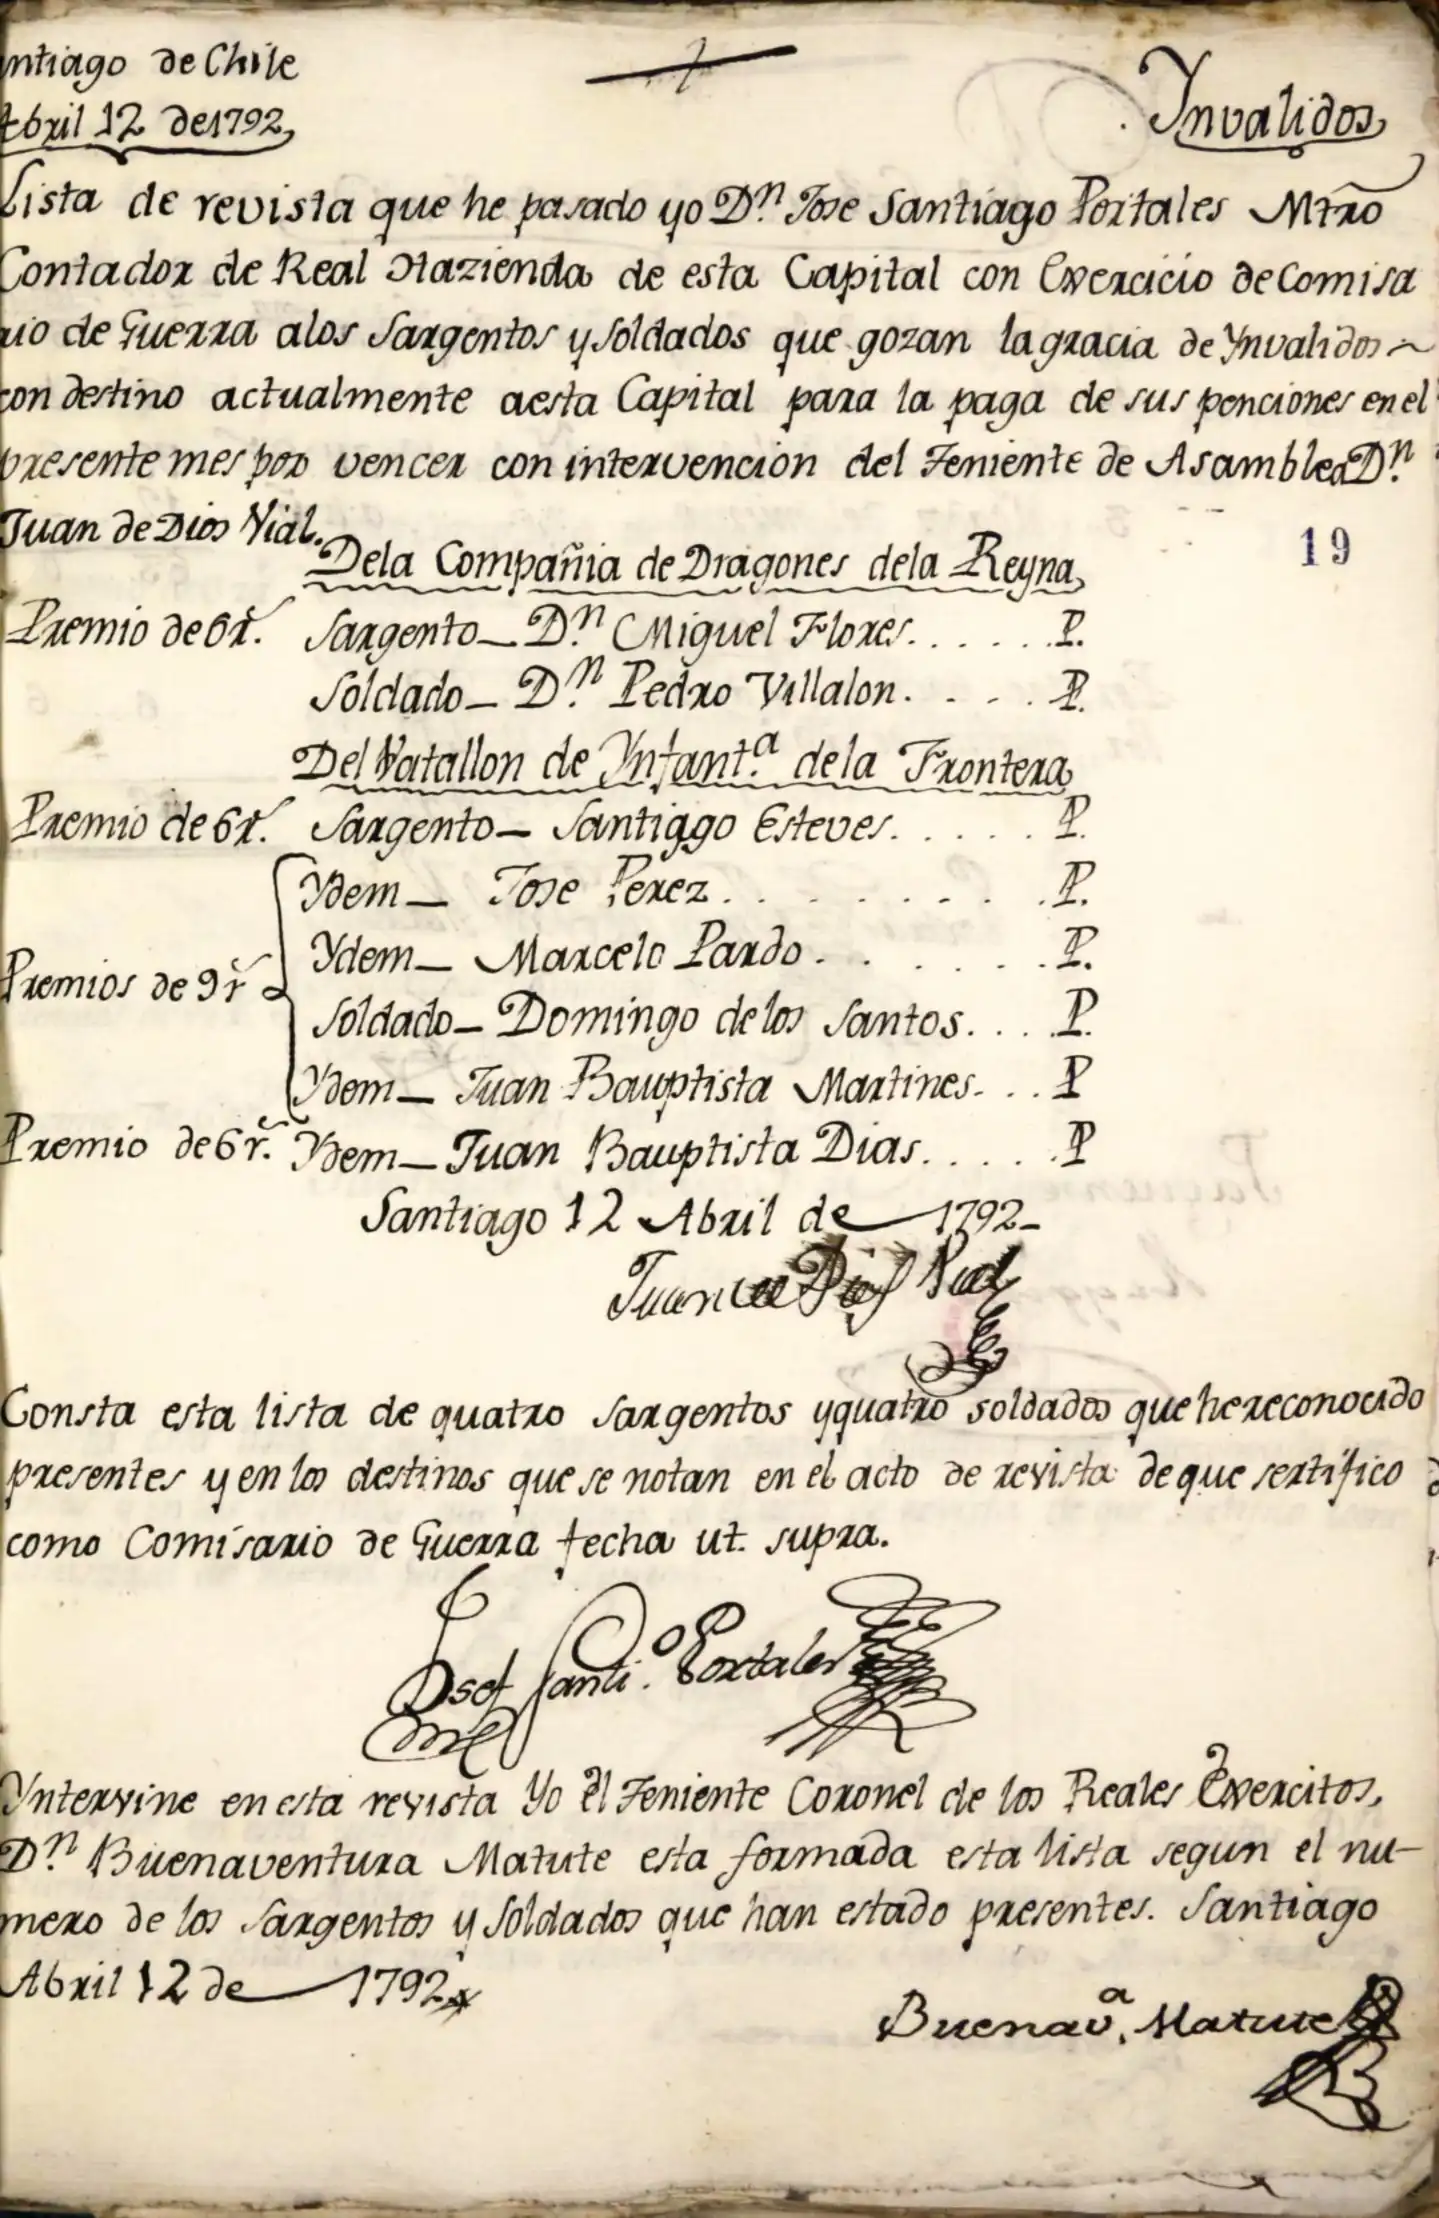 ntiago de Chile
Abril 12 de 1792,
Ynvalidos,
Lista de revista que he pasado yo D.n Jose Santiago Portales Mtro
Contador de Real Hazienda de esta Capital con Exercicio de Comisa
rio de Guerra alos Sargentos y Soldados que gozan la gracia de Ynvalidos
con destino actualmente aesta Capital para la paga de sus penciones en el
presente mes por vencer con intervencion del Teniente de Asamblea D.n
Juan de Dios Vial.
19
Dela Compañia de Dragones dela Reyna,
Premio de 6 r.s Sargento_ D.n Miguel Flores. . . . . . P.
Soldado_ D.n Pedro Villalon. . . . . P.
Del Batallon de Ynfant.a dela Frontera
Premio de 6 r.s Sargento_ Santiago Esteves. . . . . . P.
Ydem_ Jose Perez. . . . . . . . . P.
Ydem_ Marcelo Pardo. . . . . . . P.
Premios de 9 r.s
Soldado_ Domingo de los Santos. . . P.
Ydem_ Juan Bauptista Martines. . . P
Premio de 6 r.s Ydem_ Juan Bauptista Dias. . . . . . P
Santiago 12 Abril de 1792_
Juan de Dios Vial
Consta esta lista de quatro Sargentos y quatro soldados que he reconocido
presentes y en los destinos que se notan en el acto de revista de que sertifico
como Comisario de Guerra fecha ut. supra.
Josef Santi.o Portales
Yntervine en esta revista Yo el Teniente Coronel de los Reales Exercitos,
D.n Buenaventura Matute esta formada esta lista segun el nu-
mero de los Sargentos y Soldados que han estado presentes. Santiago
Abril 12 de 1792
Buenav.a Matute